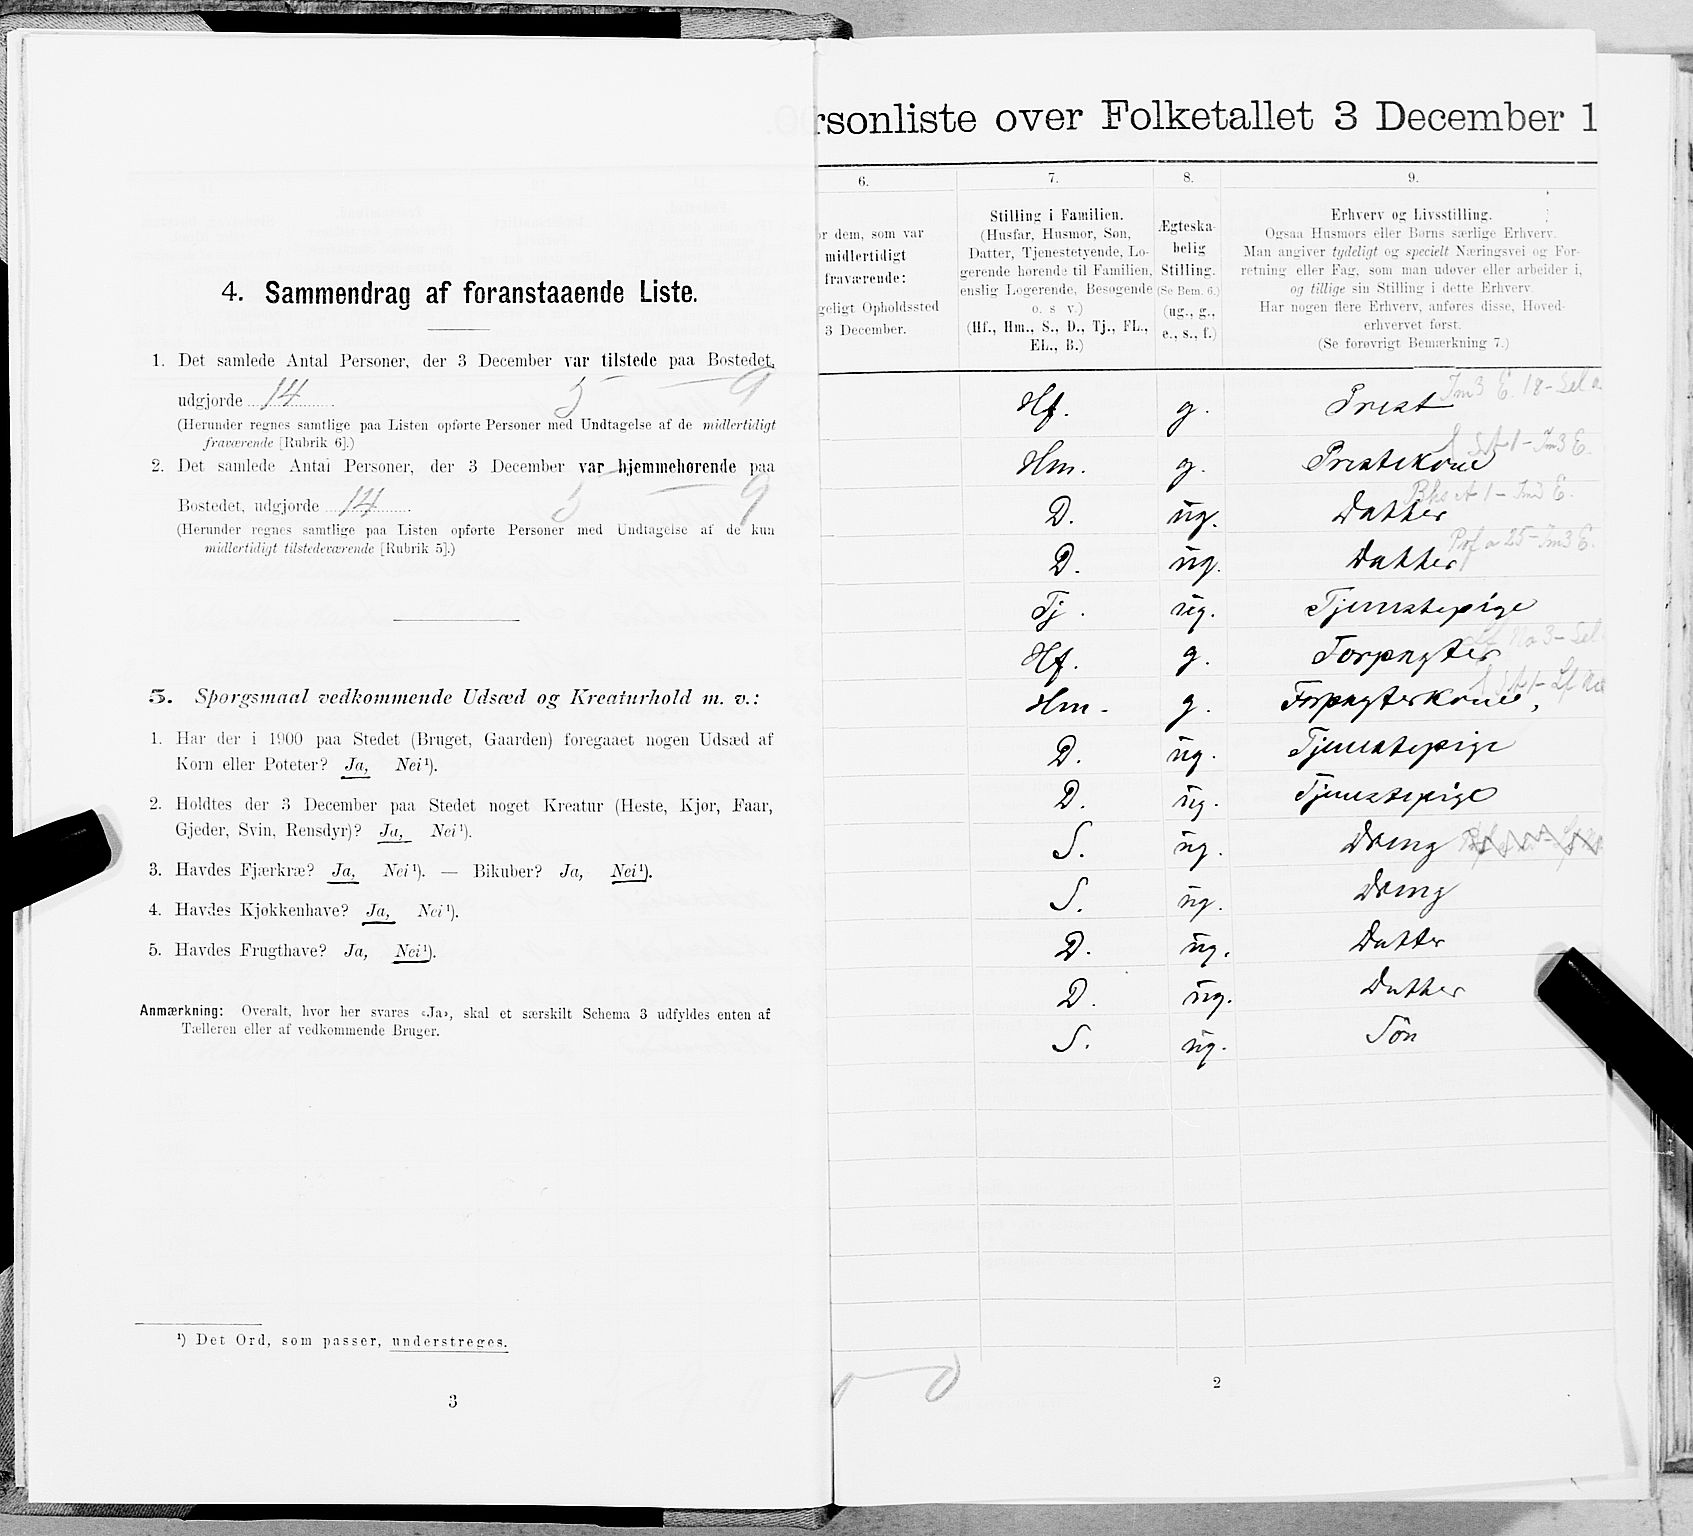 4. Sammendrag af foranstaaende Liste.
1. Det samlede Antal Personer, der 3 December var tilstede paa Bostedet,
udgjorde 14 5 — 9
(Herunder regnes samtlige paa Listen opførte Personer med Undtagelse af de midlertidigt
fraværende [Rubrik 6].)
2. Det samlede Antal Personer, der 3 December var hjemmehørende paa
Bostedet, udgjorde 14 5 — 9
(Herunder regnes samtlige paa Listen opførte Personer med Undtagelse af de kun
midlertidigt tilstedeværende [Rubrik 5].)
5. Spørgsmaal vedkommende Udsæd og Kreaturhold m. v.:
1. Har der i 1900 paa Stedet (Bruget, Gaarden) foregaaet nogen Udsæd af
Korn eller Poteter? Ja, Nei¹).
2. Holdtes der 3 December paa Stedet noget Kreatur (Heste, Kjør, Faar,
Gjeder, Svin, Rensdyr)? Ja, Nei¹).
3. Havdes Fjærkræ? Ja, Nei¹). — Bikuber? Ja, Nei¹).
4. Havdes Kjøkkenhave? Ja, Nei¹).
5. Havdes Frugthave? Ja, Nei¹).
Anmærkning: Overalt, hvor her svares «Ja», skal et særskilt Schema 3 udfyldes enten af
Tælleren eller af vedkommende Bruger.
¹) Det Ord, som passer, understreges.
3
rsonliste over Folketallet 3 December 1
6. 7. 8. 9.
r dem, som var
midlertidigt
fraværende:
geligt Opholdssted
3 December.
Stilling i Familien.
(Husfar, Husmor, Søn,
Datter, Tjenestetyende, Lo-
gerende hørende til Familien,
enslig Logerende, Besøgende
o. s v.)
(Hf., Hm., S., D., Tj., FL.,
EL., B.)
Ægteska-
belig
Stilling.
(Se Bem. 6.)
(ug., g.,
e., s., f.)
Erhverv og Livsstilling.
Ogsaa Husmors eller Børns særlige Erhverv.
Man angiver tydeligt og specielt Næringsvei og For-
retning eller Fag, som man udøver eller arbeider i,
og tillige sin Stilling i dette Erhverv.
Har nogen flere Erhverv, anføres disse, Hoved-
erhvervet først.
(Se forøvrigt Bemærkning 7.)
Hf. g. Prest
Hm. g. Prestekone
D. ug. Datter
D. ug. Datter
Tj. ug. Tjenestepige
Hf. g. Forpagter
Hm. g. Forpagterkone,
D. ug. Tjenestepige
D. ug. Tjenestepige
S. ug. Dreng
S. ug. Dreng
D. ug. Datter
D. ug. Datter
S. ug. Sön
2